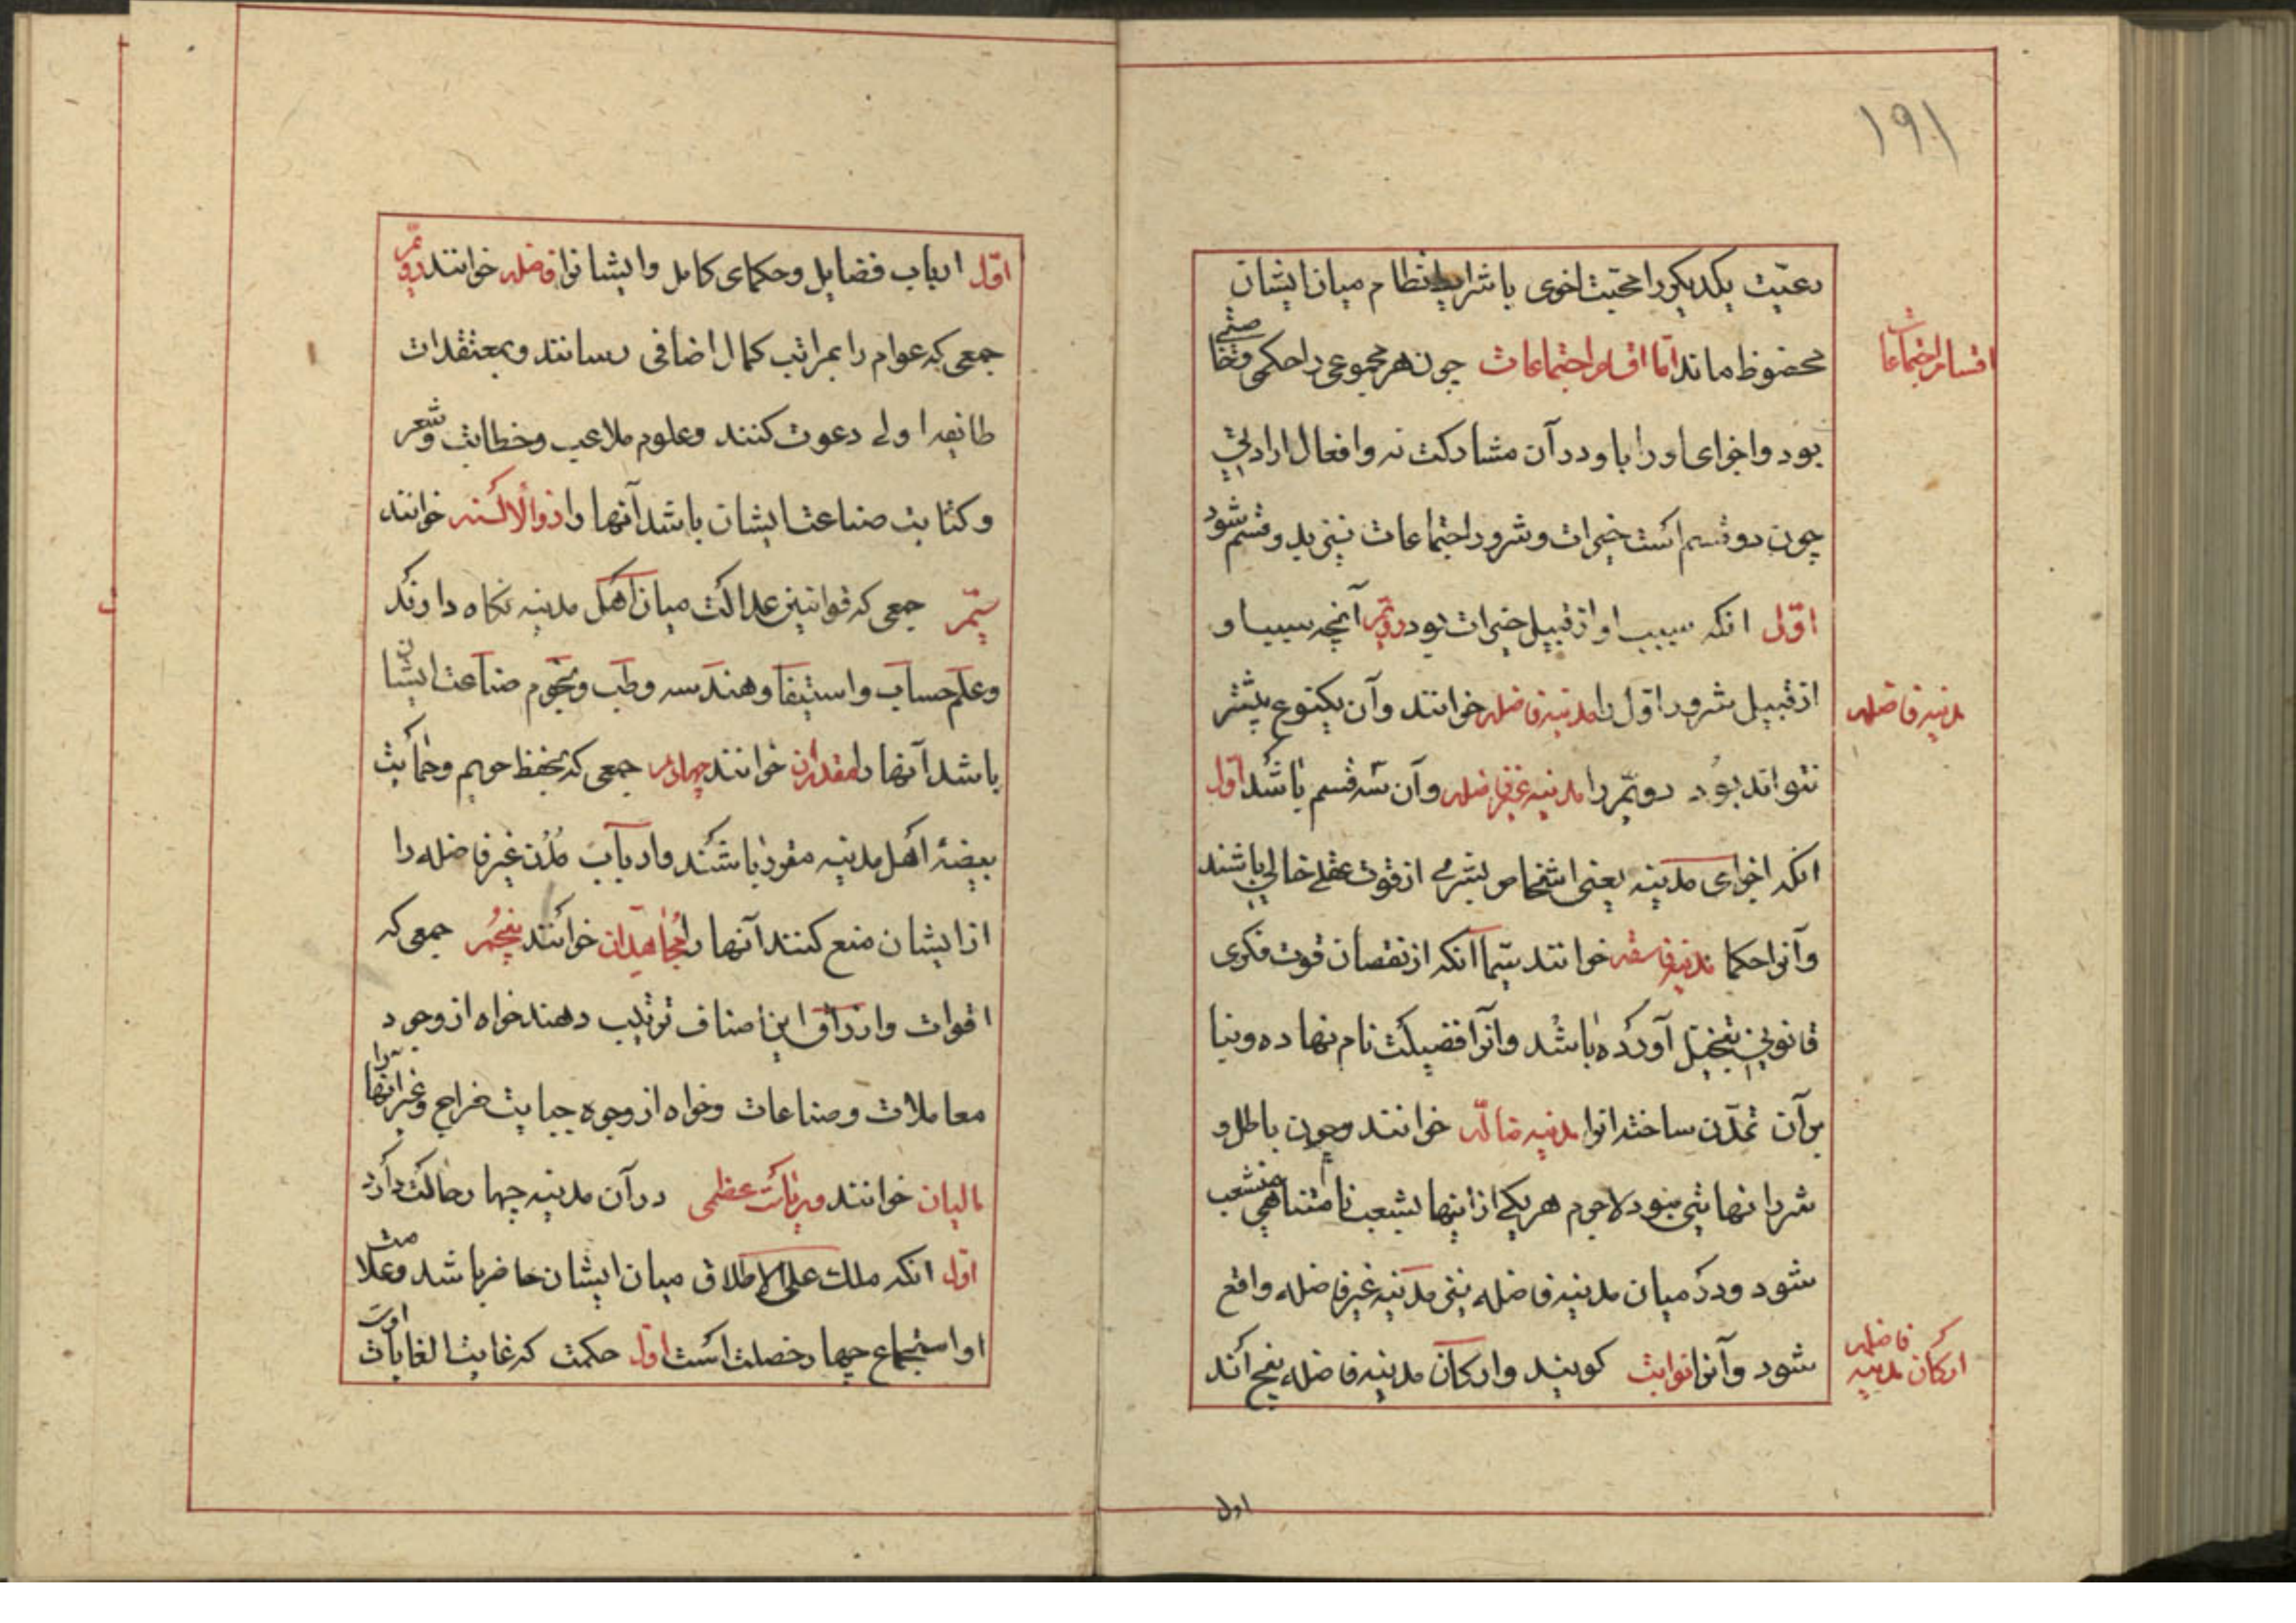 ۱۹۱
رعیت یکدیکر را محبت اخوی با شرایط انتظام میان ایشان
محفوظ ماند اما اقسام اجتماعات چون هر مجموعی را حکمی و خاصیتی
اقسام اجتماعات
بود و اجزای او را با او در آن مشارکت نه و افعال ارادی
چون دو قسم است خیرات و شرور اجتماعات نیز بدو قسم شود
اوّل انکه سبب او از قبیل خیرات بود دویّم آنچه سبب او
از قبیل شرور اوّل را مدینه فاضله خوانند و آن یکنوع بیشتر
مدینه فاضله
نتواند بود دویّم را مدینه غیر فاضله و آن سه قسم باشد اول
انکه اجزای مدینه یعنی اشخاص بشری از قوت عقلی خالی باشند
و آنرا حکما مدینه فاسقه خوانند سیّما آنکه از نقصان قوت فکری
قانونی بتخیل آورده باشد و انرا فضیلت نام نهاده و بنا
بر آن تمدّن ساخته انرا مدینه ضالّه خوانند و چون باطل و
شر را نهایتی نبود لاجرم هر یکی از اینها بشعب نامتناهی منشعب
شود و در میان مدینه فاضله نیز مدینه غیر فاضله واقع
شود و آنرا نوابت کویند و ارکان مدینه فاضله پنج اند
ارکان مدینه فاضله
اول
اوّل ارباب فضایل و حکمای کامل و ایشانرا فاضله خوانند دویّم
جمعی که عوام را بمراتب کمال اضافی رسانند و بمعتقدات
طایفه اولی دعوت کنند و علوم ملاعب و خطابت و شعر
و کتابت صناعت ایشان باشد آنها را ذو الالسنه خوانند
سیّم جمعی که قوانین عدالت میان اهل مدینه نکاه دارند
و علم حساب و استیفا و هندسه و طب و نجوم صناعت ایشان
باشد آنها را مقدران خوانند چهارم جمعی که بحفظ حریم و حمایت
بیضهٔ اهل مدینه مقرر باشند و ارباب مُدُن غیر فاضله را
از ایشان منع کنند آنها را مجاهدان خوانند پنجم جمعی که
اقوات و ارزاق این اصناف ترتیب دهند خواه از وجوه
معاملات و صناعات و خواه از وجوه جبایت خراج و غیر انها آنرا
مالیان خوانند و ریاست عظمی در آن مدینه چهار حالت دارد
اوّل انکه ملک علی الاطلاق میان ایشان حاضر باشد و علامت
او استجماع چهار خصلت است اول حکمت که غایت الغایات اوست